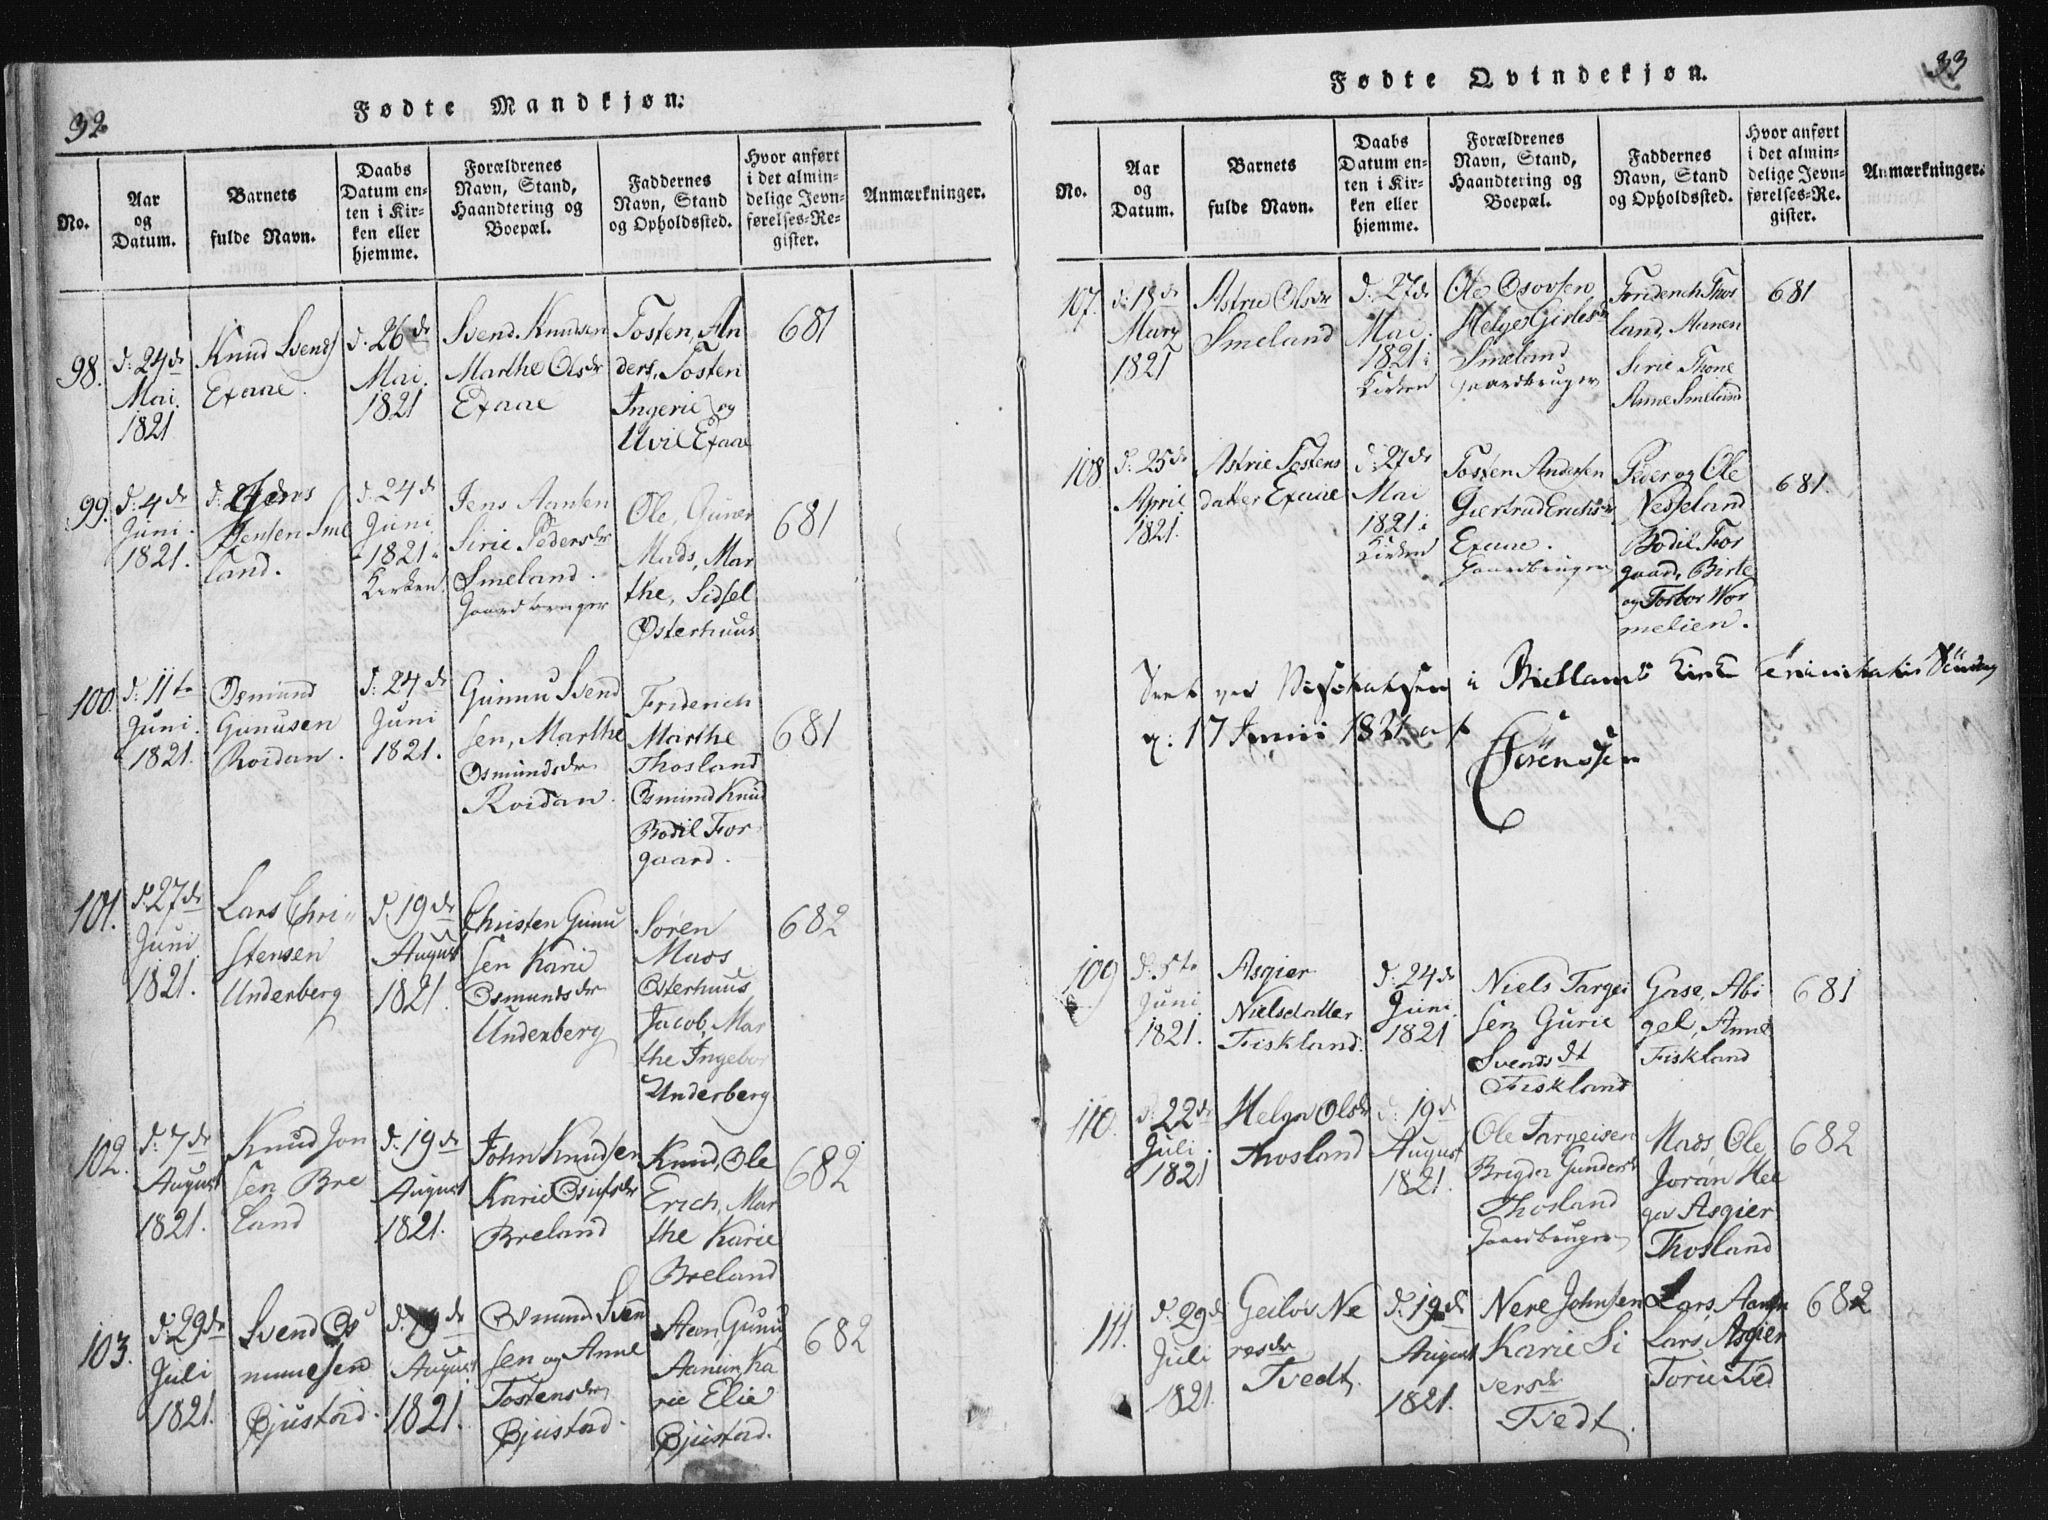 32
Fødte Mandkjøn.
No.
Aar
og
Datum.
Barnets
fulde Navn.
Daabs
Datum en-
ten i Kir-
ken eller
hjemme.
Forældrenes
Navn, Stand,
Haandtering og
Boepæl.
Faddernes
Navn, Stand
og Opholdssted.
Hvor anført
i det almin-
delige Jevn-
førelses-Re-
gister.
Anmærkninger.
98.
d: 24de
Mai
1821
Knud Svends
Exaae.
d. 26de
Mai.
1821
Svend Knudsen
Marthe Olsdr
Exaae
Tosten, An
ders, Tosten
Ingerie og
Uvil Exaae
681
99.
d: 4de
Juni.
1821.
Jens
Jensen Sme
land.
d. 24de
Juni
1821 i
Kirken
Jens Aansen
Sirie Pedersdr
Smeland.
Gaardbruger
Ole, Guner
Mads, Mar
the, Sidsel
Østerhuus
681
100.
d: 11te
Juni.
1821.
Osmund
Gunusen
Roidan.
d: 24de
Juni
1821.
Gunnu Svend
sen, Marthe
Osmundsdr
Roidan.
Friderich
Marthe
Thosland
Osmund Knud
Bodil For
gaard.
681
101.
d. 27de
Juni
1821.
Lars Chri
stensen
Underberg
d. 19de
August
1821.
Christen Gunu
sen Karie
Osmundsdr
Underberg
Søren
Mads
Østerhuus
Jacob, Mar
the Ingebor
Underberg
682
102.
d. 7de
August
1821.
Knud Jon
sen Bre
land
d. 19de
August
1821.
John Knudsen
Karie Osufsdr
Breland
Knud, Ole
Erich, Mar
the Karie
Breland
682
103.
d. 29de
Juli
1821.
Svend Os
mundsen
Bjustad.
d. 19de
August
1821.
Osmund Sven
sen og Anne
Tostensdr
Bjustad.
Aan, Gunu
Aanun, Ka
rie Elie
Bjustad.
682
33
Fødte Qvindekjøn.
No.
Aar
og
Datum.
Barnets
fulde Navn.
Daabs
Datum en-
ten i Kir-
ken eller
hjemme.
Forældrenes
Navn, Stand,
Haandtering og
Boepæl.
Faddernes
Navn, Stand
og Opholdssted.
Hvor anført
i det almin-
delige Jevn-
førelses-Re-
gister.
Anmærkninger.
107.
d: 18de
Marz
1821
Astrie Olsdr
Smeland
d: 27de
Mai.
1821 i
Kirken
Ole Osovsen
Helge Gislesdr
Smeland
Gaardbruger
Friderich Thos
land, Aanen
Sirie Thone
Anne Smeland
681
108
d: 25de
April
1821.
Astrie Tostens
datter Exaae
d: 27de
Mai
1821 i
Kirken
Tosten Andersen
Giertrud Erichsdr
Exaae.
Gaardbruger
Peder og Ole
Vesseland
Bodil For
gaard, Birte
og Torbor Wor
melien.
681.
Seet ved Visitatsen i Biellands Kirke Trinitatis Søndag
d: 17 Junii 1821 af
Sørenssen
109
d. 5te
Juni
1821.
Asgier
Nielsdatter
Fiskland.
d: 24de
Juni
1821
Niels Targei
sen Gurie
Svendsdt
Fiskland
Gase, Abi
gel, Anne
Fiskland
681
110.
d: 22de
Juli.
1821
Helga Olsdr
Thosland
d: 19de
August
1821.
Ole Targeisen
Bregda Gundersdr
Thosland
Gaardbruger
Mads, Ole
Joran Hel
ga Asgier
Thosland
682
111.
d. 29de
Juli
1821.
Geilov Ne
resdr
Tvedt.
d: 19de
August
1821.
Nere Johnsen
Karie Si
versdr
Tvedt.
Lars, Aanen
Lars, Asgier
Torie Tved
682